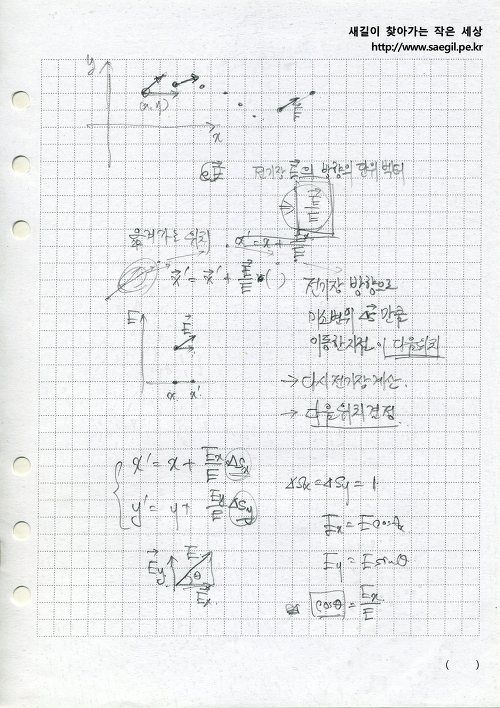 새길이 찾아가는 작은 세상
http://www.saegil.pe.kr
y
(x, y)
x
E/E
전기장 E의 방향의 단위 벡터
E/E
옮겨가는 위치
x' = x +
x' = x' + E/E ( )
전기장 방향으로
미소변위 만큼
이동한 지점이 다음위치
E
E
x x'
→ 다시 전기장 계산.
→ 다음 위치 결정.
x' = x + Ex/E Δsx
y' = y + Ey/E Δsy
Δsx = Δsy = 1
Ex = E cosθ
Ey = E sinθ
cosθ = Ex/E
Ey E θ Ex
( )